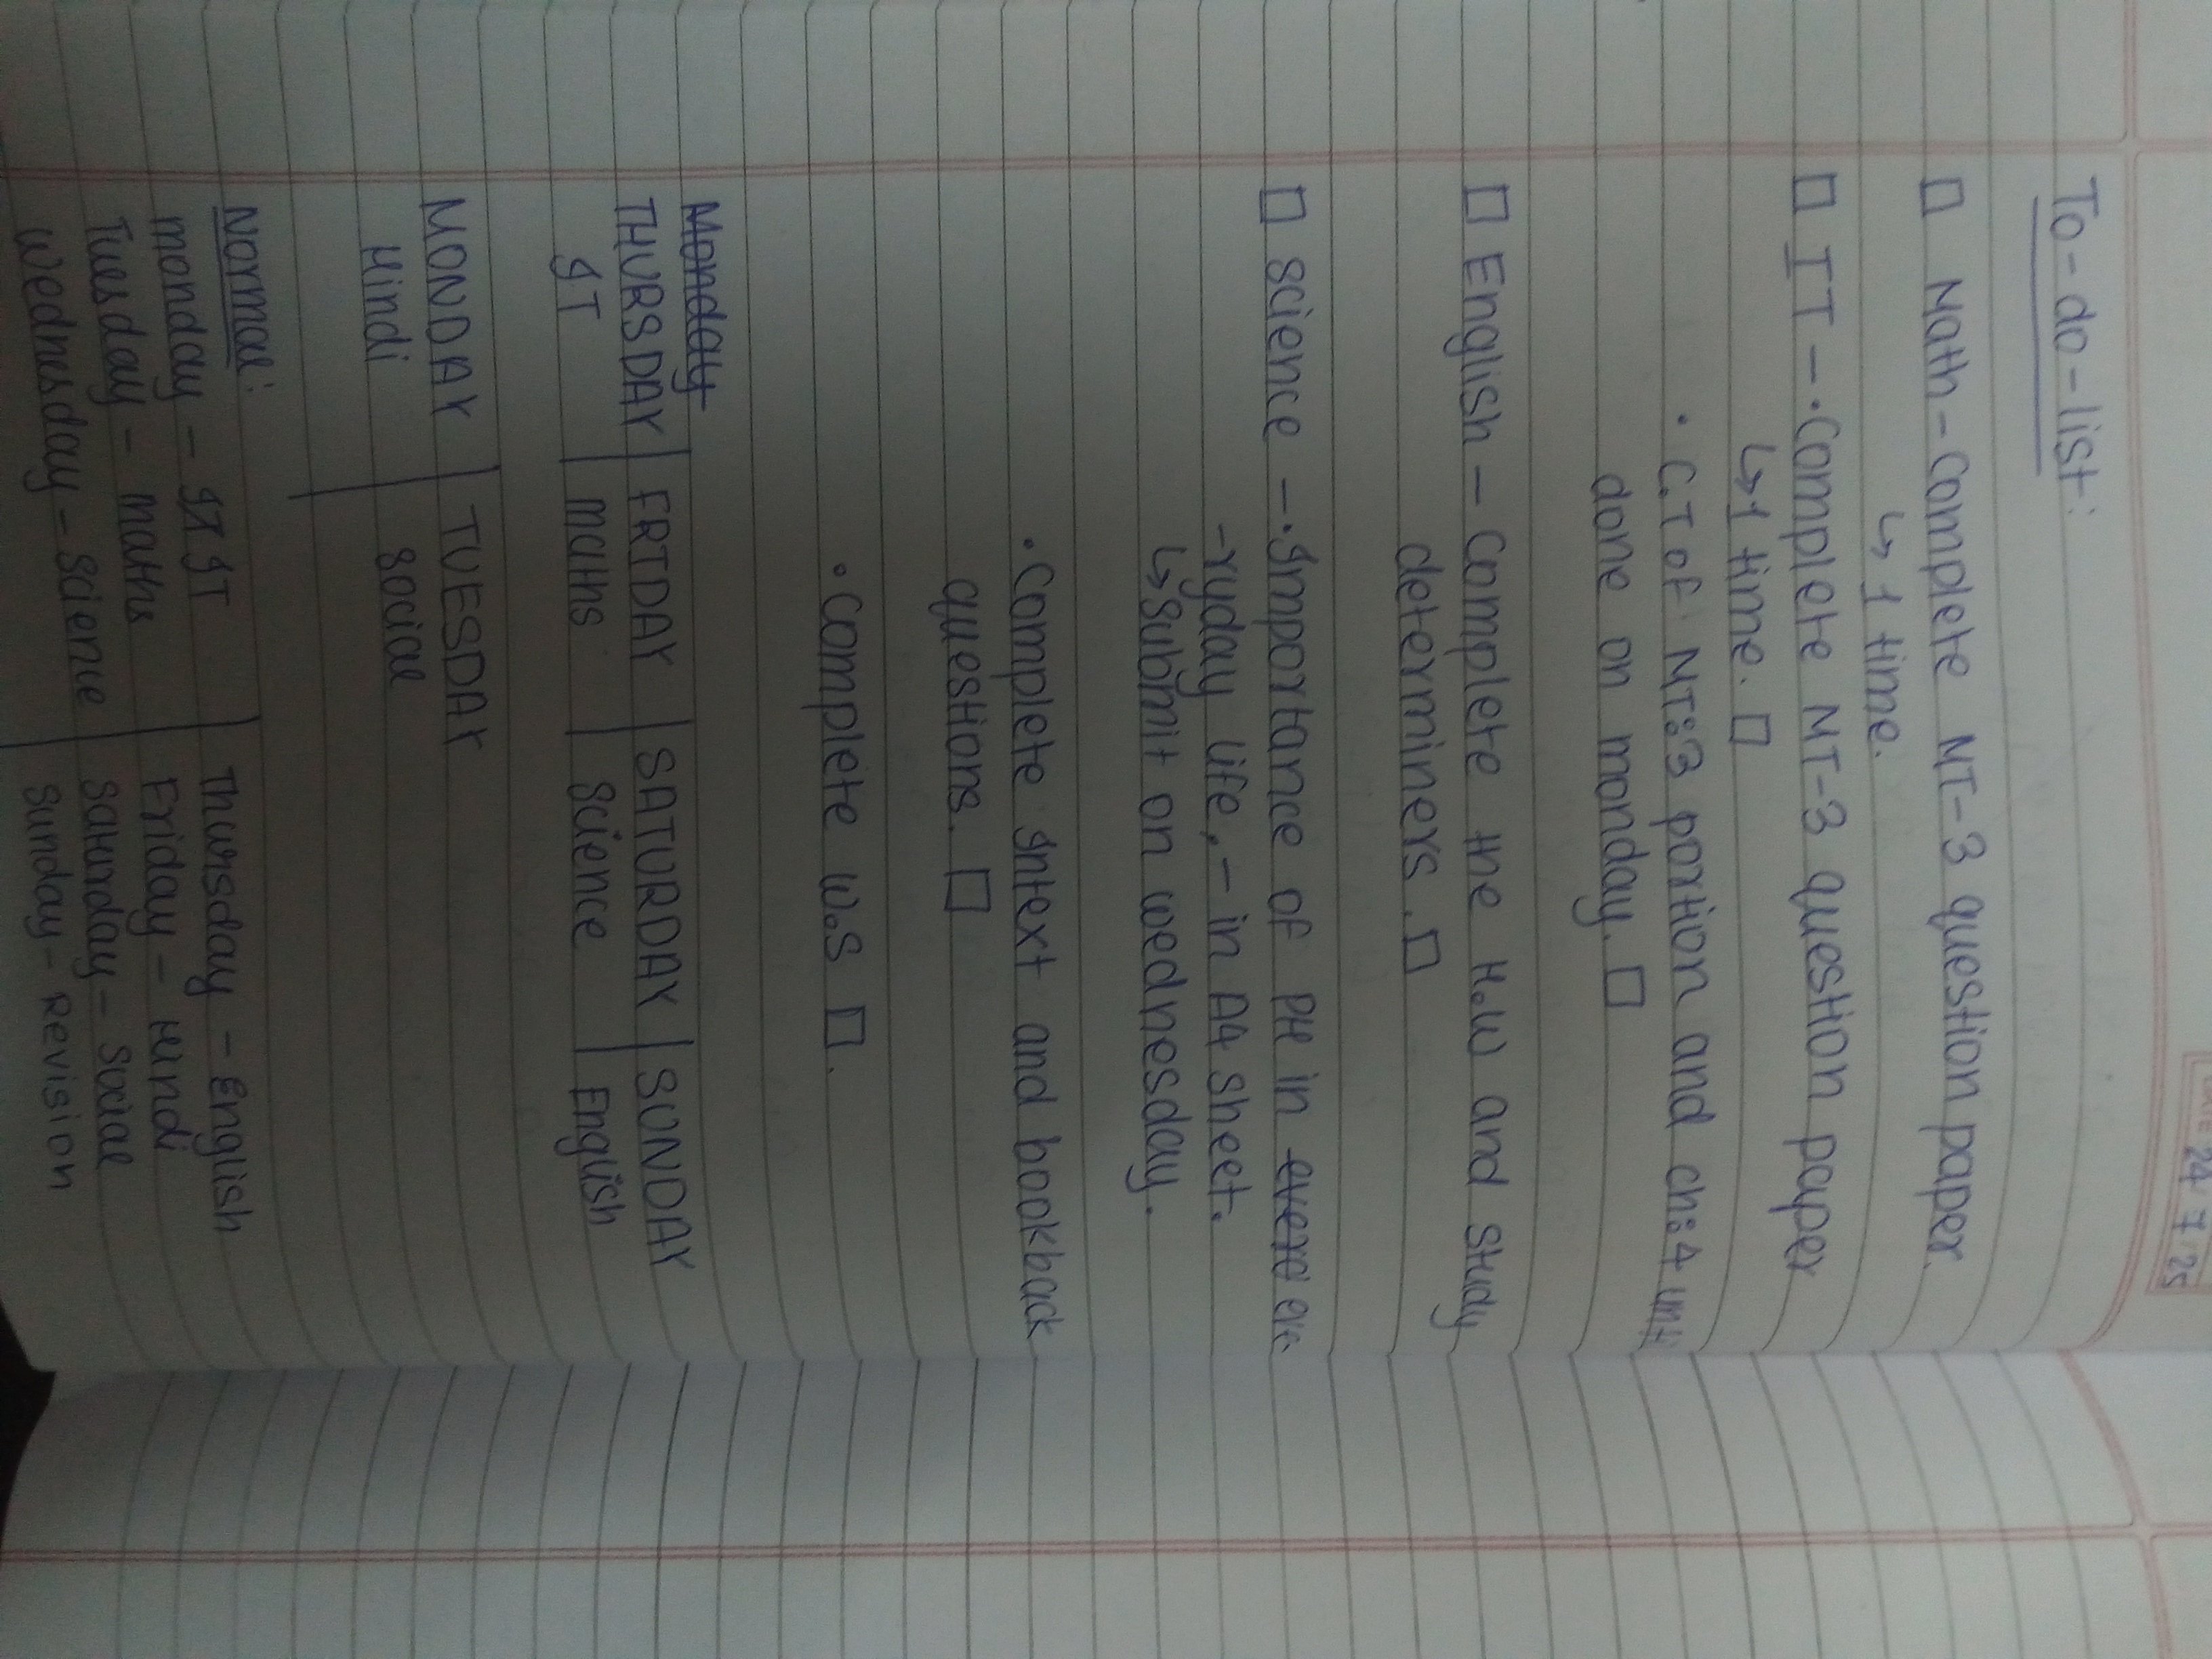 24 7 25
To-do-list:
□ Math - Complete MT-3 question paper.
↳ 1 time.
□ IT - • Complete MT-3 question paper
↳ 1 time. □
• C.T of MT:3 portion and ch:4 until
done on monday. □
□ English - Complete the H.W and study
determiners. □
□ Science - • Importance of PH in evere eve
-ryday life, - in A4 sheet.
↳ Submit on wednesday.
• Complete Intext and bookback
questions. □
• Complete W.S □.
Monday
THURSDAY | FRIDAY | SATURDAY | SUNDAY
IT | maths | Science | English
MONDAY | TUESDAY
Hindi | Social
Normal:
monday - IT | Thursday - English
Tuesday - maths | Friday - Hindi
Wednesday - Science | Saturday - Social
Sunday - Revision